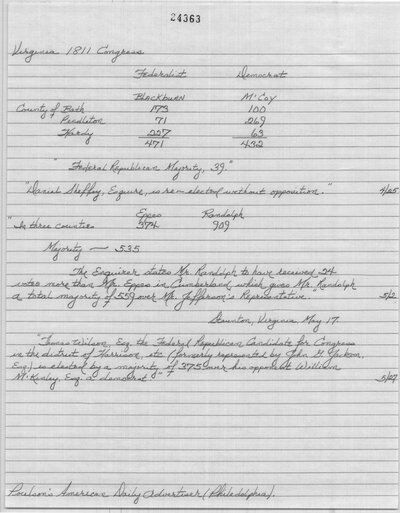 24363
Virginia 1811 Congress
Federalist Democrat
Blackburn McCoy
County of Bath 173 100
Pendleton 71 269
Hardy 227 63
471 432
"Federal Republican Majority, 39."
"Daniel Sheffey, Esquire, is re-elected without opposition." 4/25
Eppes Randolph
"In three counties 374 909
Majority — 535
The Enquirer states Mr. Randolph to have received 24
votes more than Mr. Eppes in Cumberland which gives Mr. Randolph
a total majority of 559 over Mr. Jefferson's Representative." 5/2
Staunton, Virginia May 17.
"Thomas Wilson, Esq. the Federal Republican Candidate for Congress
in the district of Harrison, etc (formerly represented by John G. Jackson,
Esq.) is elected by a majority of 375 over his opponent William
McKinley, Esq. a democrat." 5/27
Poulson's American Daily Advertiser (Philadelphia).